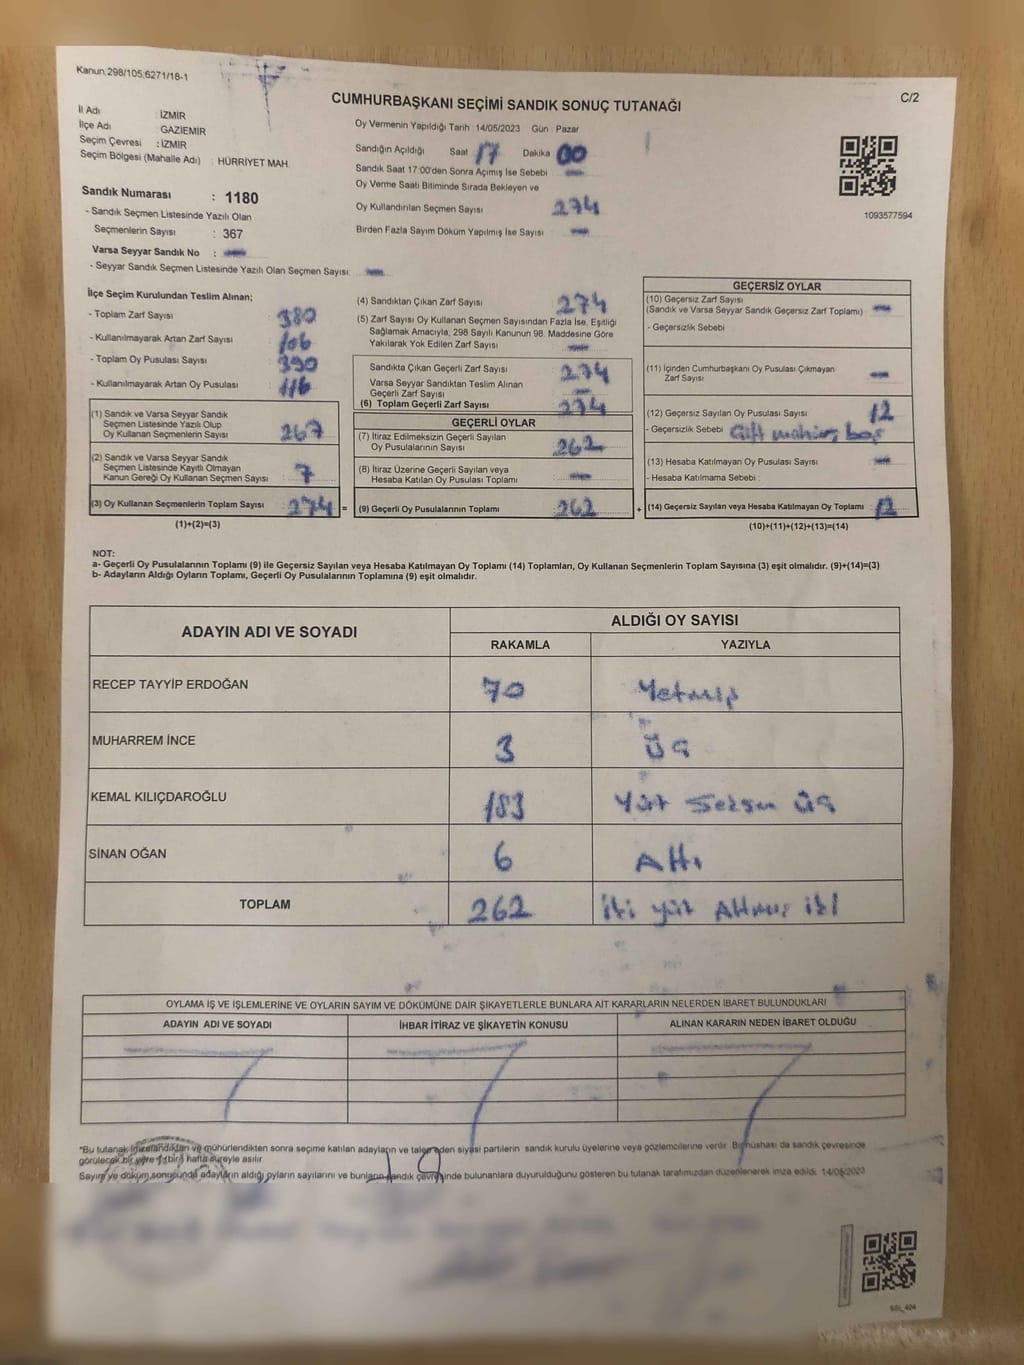 Kanun.298/105;6271/18-1
C/2
CUMHURBAŞKANI SEÇİMİ SANDIK SONUÇ TUTANAĞI
İl Adı : İZMİR
İlçe Adı : GAZİEMİR
Seçim Çevresi : İZMİR
Seçim Bölgesi (Mahalle Adı) : HÜRRİYET MAH.
Sandık Numarası : 1180
- Sandık Seçmen Listesinde Yazılı Olan
Seçmenlerin Sayısı : 367
Varsa Seyyar Sandık No : -
- Seyyar Sandık Seçmen Listesinde Yazılı Olan Seçmen Sayısı: -
Oy Vermenin Yapıldığı Tarih : 14/05/2023 Gün : Pazar
Sandığın Açıldığı Saat 17 Dakika 00
Sandık Saat 17:00'den Sonra Açımış İse Sebebi -
Oy Verme Saati Bitiminde Sırada Bekleyen ve
Oy Kullandırılan Seçmen Sayısı 274
Birden Fazla Sayım Döküm Yapılmış İse Sayısı -
1093577594
İlçe Seçim Kurulundan Teslim Alınan;
- Toplam Zarf Sayısı : 380
- Kullanılmayarak Artan Zarf Sayısı : 106
- Toplam Oy Pusulası Sayısı : 390
- Kullanılmayarak Artan Oy Pusulası : 116
(1) Sandık ve Varsa Seyyar Sandık
Seçmen Listesinde Yazılı Olup
Oy Kullanan Seçmenlerin Sayısı : 267
(2) Sandık ve Varsa Seyyar Sandık
Seçmen Listesinde Kayıtlı Olmayan
Kanun Gereği Oy Kullanan Seçmen Sayısı : 7
(3) Oy Kullanan Seçmenlerin Toplam Sayısı : 274 =
(1)+(2)=(3)
(4) Sandıktan Çıkan Zarf Sayısı : 274
(5) Zarf Sayısı Oy Kullanan Seçmen Sayısından Fazla İse, Eşitliği
Sağlamak Amacıyla, 298 Sayılı Kanunun 98. Maddesine Göre
Yakılarak Yok Edilen Zarf Sayısı : -
Sandıkta Çıkan Geçerli Zarf Sayısı : 274
Varsa Seyyar Sandıktan Teslim Alınan
Geçerli Zarf Sayısı : -
(6) Toplam Geçerli Zarf Sayısı : 274
GEÇERLİ OYLAR
(7) İtiraz Edilmeksizin Geçerli Sayılan
Oy Pusulalarının Sayısı : 262
(8) İtiraz Üzerine Geçerli Sayılan veya
Hesaba Katılan Oy Pusulası Toplamı : -
(9) Geçerli Oy Pusulalarının Toplamı : 262 +
GEÇERSİZ OYLAR
(10) Geçersiz Zarf Sayısı
(Sandık ve Varsa Seyyar Sandık Geçersiz Zarf Toplamı) : -
- Geçersizlik Sebebi :
(11) İçinden Cumhurbaşkanı Oy Pusulası Çıkmayan
Zarf Sayısı : -
(12) Geçersiz Sayılan Oy Pusulası Sayısı : 12
- Geçersizlik Sebebi : Çift mühür, boş
(13) Hesaba Katılmayan Oy Pusulası Sayısı : -
- Hesaba Katılmama Sebebi :
(14) Geçersiz Sayılan veya Hesaba Katılmayan Oy Toplamı : 12
(10)+(11)+(12)+(13)=(14)
NOT:
a- Geçerli Oy Pusulalarının Toplamı (9) ile Geçersiz Sayılan veya Hesaba Katılmayan Oy Toplamı (14) Toplamları, Oy Kullanan Seçmenlerin Toplam Sayısına (3) eşit olmalıdır. (9)+(14)=(3)
b- Adayların Aldığı Oyların Toplamı, Geçerli Oy Pusulalarının Toplamına (9) eşit olmalıdır.
ADAYIN ADI VE SOYADI ALDIĞI OY SAYISI
RAKAMLA YAZIYLA
RECEP TAYYİP ERDOĞAN 70 Yetmiş
MUHARREM İNCE 3 Üç
KEMAL KILIÇDAROĞLU 183 Yüz Seksen üç
SİNAN OĞAN 6 Altı
TOPLAM 262 İki yüz Altmış iki
OYLAMA İŞ VE İŞLEMLERİNE VE OYLARIN SAYIM VE DÖKÜMÜNE DAİR ŞİKAYETLERLE BUNLARA AİT KARARLARIN NELERDEN İBARET BULUNDUKLARI
ADAYIN ADI VE SOYADI İHBAR İTİRAZ VE ŞİKAYETİN KONUSU ALINAN KARARIN NEDEN İBARET OLDUĞU
*Bu tutanak imzalandıktan ve mühürlendikten sonra seçime katılan adayların ve talep eden siyasi partilerin sandık kurulu üyelerine veya gözlemcilerine verilir. Bir nüshası da sandık çevresinde
görülecek bir yere 1 (bir) hafta süreyle asılır.
Sayım ve döküm sonucunda adayların aldığı oyların sayılarını ve bunların sandık çevresinde bulunanlara duyurulduğunu gösteren bu tutanak tarafımızdan düzenlenerek imza edildi. 14/05/2023